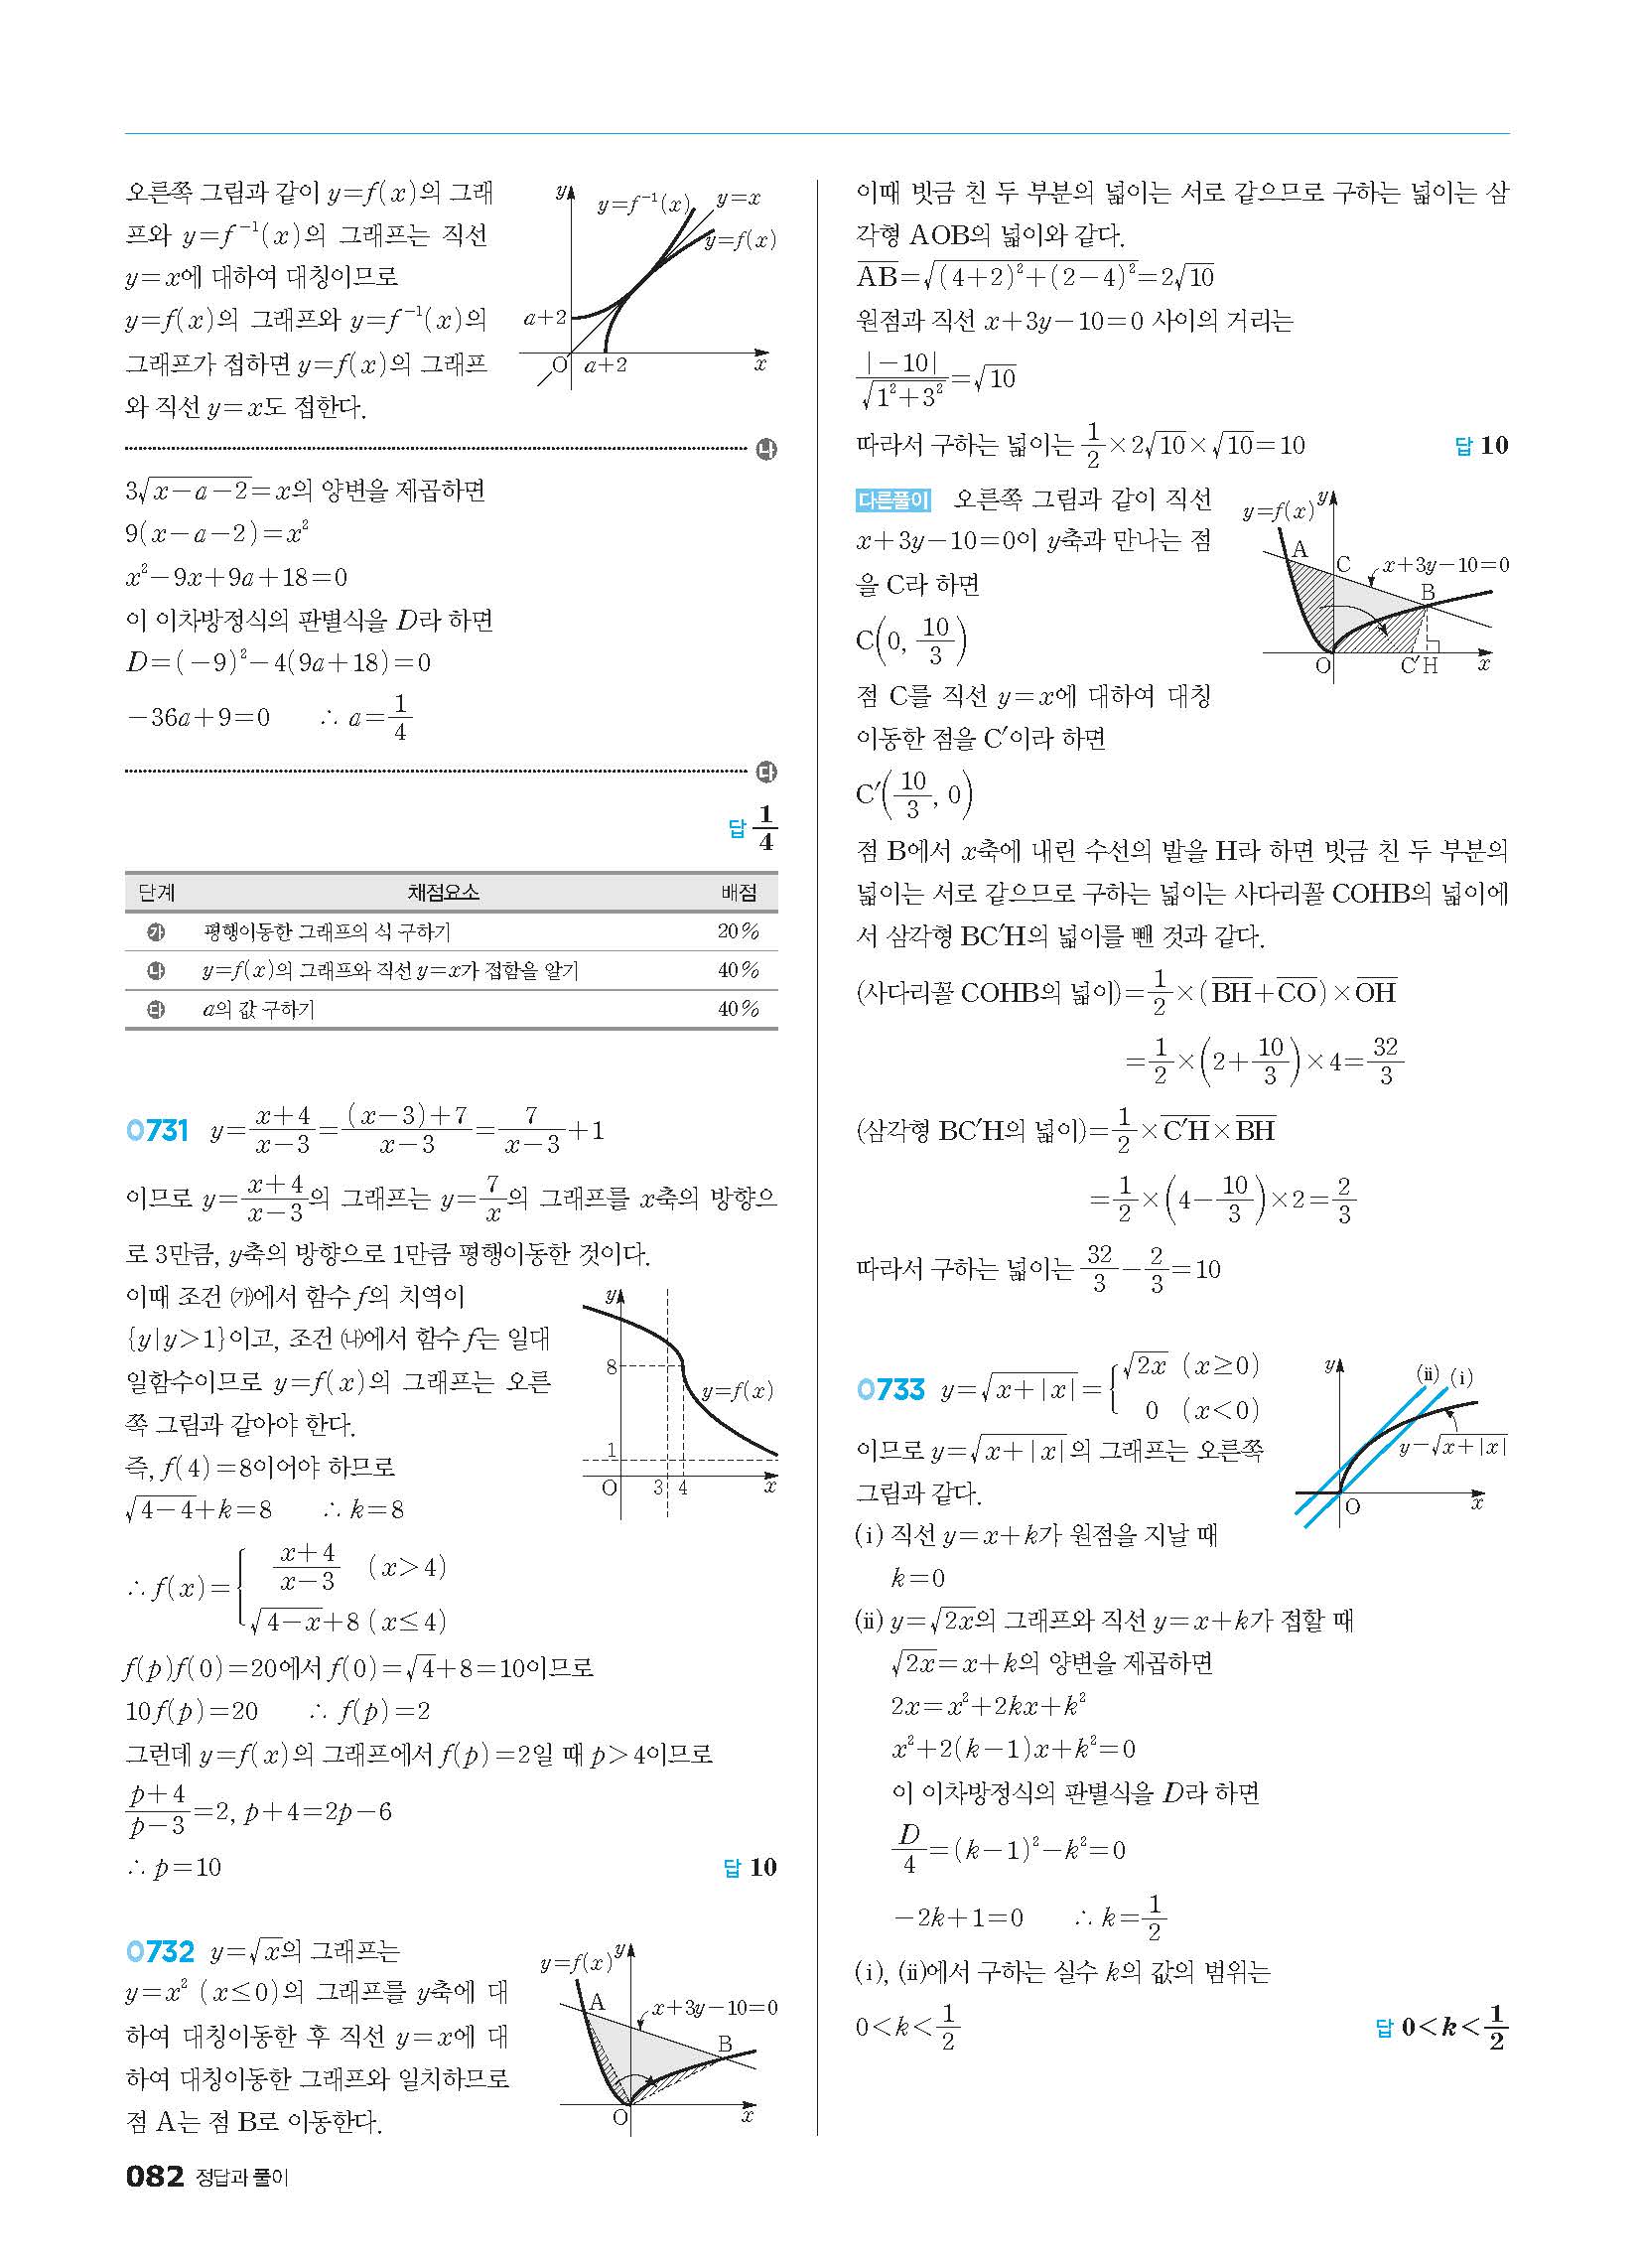 오른쪽 그림과 같이 y=f(x)의 그래
프와 y=f⁻¹(x)의 그래프는 직선
y=x에 대하여 대칭이므로
y=f(x)의 그래프와 y=f⁻¹(x)의
그래프가 접하면 y=f(x)의 그래프
와 직선 y=x도 접한다.
y
y=f⁻¹(x)
y=x
y=f(x)
a+2
O
a+2
x
나
3√(x-a-2)=x의 양변을 제곱하면
9(x-a-2)=x²
x²-9x+9a+18=0
이 이차방정식의 판별식을 D라 하면
D=(-9)²-4(9a+18)=0
-36a+9=0 ∴ a=1/4
다
답 1/4
단계 채점요소 배점
가 평행이동한 그래프의 식 구하기 20%
나 y=f(x)의 그래프와 직선 y=x가 접함을 알기 40%
다 a의 값 구하기 40%
0731 y=(x+4)/(x-3)=((x-3)+7)/(x-3)=7/(x-3)+1
이므로 y=(x+4)/(x-3)의 그래프는 y=7/x의 그래프를 x축의 방향으
로 3만큼, y축의 방향으로 1만큼 평행이동한 것이다.
이때 조건 ㈎에서 함수 f의 치역이
{y|y>1}이고, 조건 ㈏에서 함수 f는 일대
일함수이므로 y=f(x)의 그래프는 오른
쪽 그림과 같아야 한다.
즉, f(4)=8이어야 하므로
√(4-4)+k=8 ∴ k=8
y
8
y=f(x)
1
O
3
4
x
∴ f(x)={ (x+4)/(x-3) (x>4)
√(4-x)+8 (x≤4)
f(p)f(0)=20에서 f(0)=√4+8=10이므로
10f(p)=20 ∴ f(p)=2
그런데 y=f(x)의 그래프에서 f(p)=2일 때 p>4이므로
(p+4)/(p-3)=2, p+4=2p-6
∴ p=10 답 10
0732 y=√x의 그래프는
y=x² (x≤0)의 그래프를 y축에 대
하여 대칭이동한 후 직선 y=x에 대
하여 대칭이동한 그래프와 일치하므로
점 A는 점 B로 이동한다.
y=f(x)
y
A
x+3y-10=0
B
O
x
082 정답과 풀이
이때 빗금 친 두 부분의 넓이는 서로 같으므로 구하는 넓이는 삼
각형 AOB의 넓이와 같다.
A͞B͞=√((4+2)²+(2-4)²)=2√10
원점과 직선 x+3y-10=0 사이의 거리는
|-10|/√(1²+3²)=√10
따라서 구하는 넓이는 1/2×2√10×√10=10 답 10
다른풀이 오른쪽 그림과 같이 직선
x+3y-10=0이 y축과 만나는 점
을 C라 하면
C(0, 10/3)
점 C를 직선 y=x에 대하여 대칭
이동한 점을 C′이라 하면
C′(10/3, 0)
y=f(x)
y
A
C
x+3y-10=0
B
O
C′
H
x
점 B에서 x축에 내린 수선의 발을 H라 하면 빗금 친 두 부분의
넓이는 서로 같으므로 구하는 넓이는 사다리꼴 COHB의 넓이에
서 삼각형 BC′H의 넓이를 뺀 것과 같다.
(사다리꼴 COHB의 넓이)=1/2×(B͞H͞+C͞O͞)×O͞H͞
=1/2×(2+10/3)×4=32/3
(삼각형 BC′H의 넓이)=1/2×C͞′H͞×B͞H͞
=1/2×(4-10/3)×2=2/3
따라서 구하는 넓이는 32/3-2/3=10
0733 y=√(x+|x|)={ √(2x) (x≥0)
0 (x<0)
이므로 y=√(x+|x|)의 그래프는 오른쪽
그림과 같다.
y
(ⅱ)
(ⅰ)
y=√(x+|x|)
O
x
(ⅰ) 직선 y=x+k가 원점을 지날 때
k=0
(ⅱ) y=√(2x)의 그래프와 직선 y=x+k가 접할 때
√(2x)=x+k의 양변을 제곱하면
2x=x²+2kx+k²
x²+2(k-1)x+k²=0
이 이차방정식의 판별식을 D라 하면
D/4=(k-1)²-k²=0
-2k+1=0 ∴ k=1/2
(ⅰ), (ⅱ)에서 구하는 실수 k의 값의 범위는
0<k<1/2 답 0<k<1/2